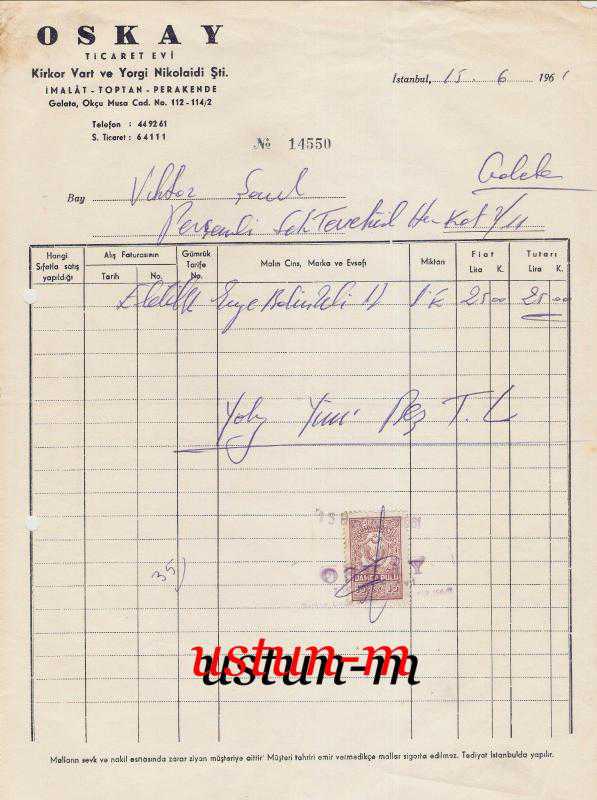 OSKAY
TİCARET EVİ
Kirkor Vart ve Yorgi Nikolaidi Şti.
İMALÂT - TOPTAN - PERAKENDE
Galata, Okçu Musa Cad. No. 112-114/2
Telefon : 449261
S. Ticaret : 64111
İstanbul, 15. 6 1961
№ 14550
Bay Viktor
Han Kat
Hangi Sıfatla satış yapıldığı Alış Faturasının Tarih No. Gümrük Tarife No. Malın Cins, Marka ve Evsafı Miktarı Fiat Lira K. Tutarı Lira K.
25 00 25 00
Yalnız Yirmi Beş T. L
OSKAY
DAMGA PULU
35
ustun-m
Malların sevk ve nakil esnasında zarar ziyan müşteriye aittir. Müşteri tahriri emir vermedikçe mallar sigorta edilmez. Tediyat İstanbulda yapılır.